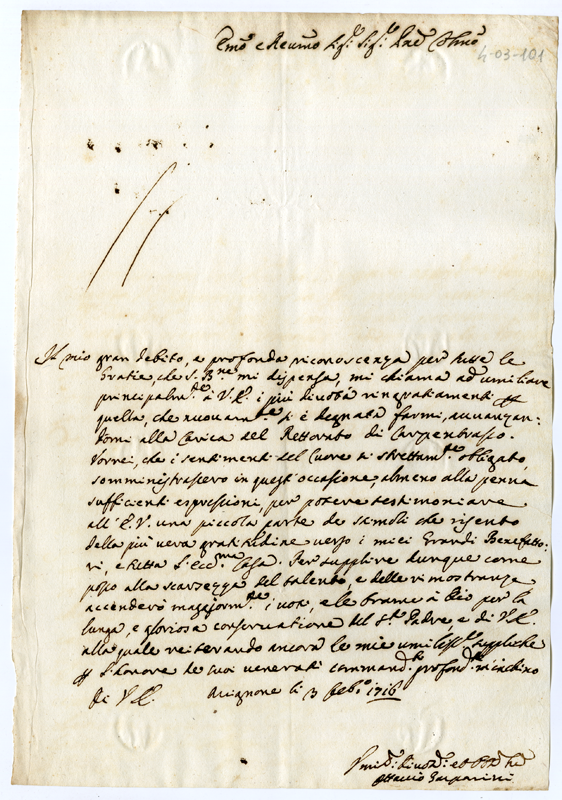 Em.o e Reu.mo Sig.r Sig.r Pad.
4-03-101
Il mio gran debito, e profonda riconoscenza per tutte le
Gratie, che S. B.ne mi dispensa, mi chiama ad umiliare
principalm.te à V.E. i più divoti ringratiamenti
quella, che nuouam.te si è degnata farmi, auuanzan:
domi alla Carica del Rettorato di Carpentrasso.
Vorrei, che i sentimenti del Cuore sì strettam.te obligato,
somministrassero in quest'occasione almeno alla penna
sufficienti espressioni, per potere testimoniare
all'E.V. una piccola parte de stimoli che risento
della più uera gratitudine uerso i miei Grandi Benefatto:
ri, e tutta l'Ecc.ma Casa. Per supplire dunque come
posso alla scarsezza del talento, e delle rimostranze
accenderò maggiorm.te i uoti, e le brame à Dio per la
lunga, e gloriosa conseruatione del S.to Padre, e di V.E.
alla quale reiterando ancora le mie umiliss.e suppliche
l'honore de suoi uenerati command.ti profond.te m'inchino
Di V.E. Auignone li 3 Feb.o 1716
Umil.o diuot.o et